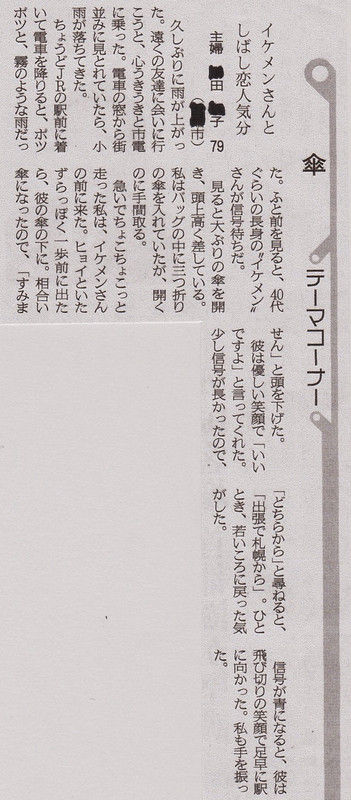 傘
テーマコーナー
イケメンさんと
しばし恋人気分
主婦 田 子 79
(市)
久しぶりに雨が上がっ
た。遠くの友達に会いに行
こうと、心うきうきと市電
に乗った。電車の窓から街
並みに見とれていたら、小
雨が落ちてきた。
ちょうどJRの駅前に着
いて電車を降りると、ポツ
ポツと、霧のような雨だっ
た。ふと前を見ると、40代
ぐらいの長身の〝イケメン〟
さんが信号待ちだ。
見ると大ぶりの傘を開
き、頭上高く差している。
私はバッグの中に三つ折り
の傘を入れていたが、開く
のに手間取る。
急いでちょこちょこっと
走った私は、イケメンさん
の前に来た。ヒョイといた
ずらっぽく一歩前に出た
ら、彼の傘の下に。相合い
傘になったので、「すみま
せん」と頭を下げた。
彼は優しい笑顔で「いい
ですよ」と言ってくれた。
少し信号が長かったので、
「どちらから」と尋ねると、
「出張で札幌から」。ひと
とき、若いころに戻った気
がした。
信号が青になると、彼は
飛び切りの笑顔で足早に駅
に向かった。私も手を振っ
た。